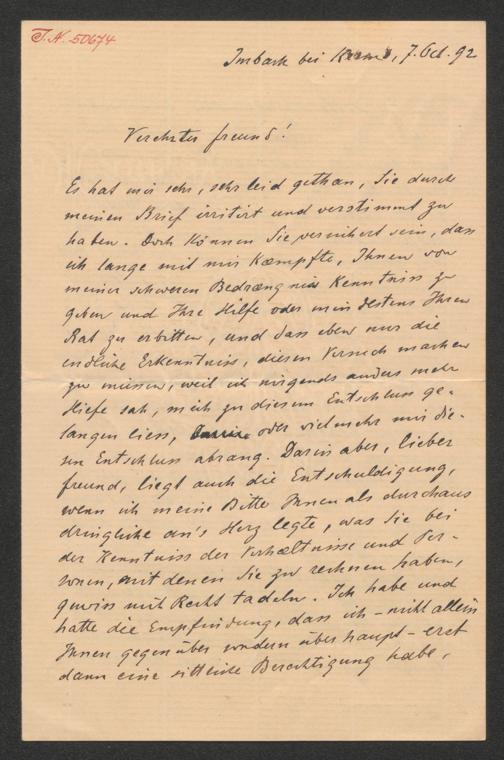 I.N. 50674
Imbach bei Krems, 7. Oct. 92
Verehrter Freund!
Es hat mir sehr, sehr leid gethan, Sie durch
meinen Brief irritirt und verstimmt zu
haben. Doch können Sie versichert sein, dass
ich lange mit mir kæmpfte, Ihnen von
meiner schweren Bedrængniss Kenntniss zu
geben und Ihre Hilfe oder mindestens Ihren
Rat zu erbitten, und dass eben nur die
endliche Erkenntniss, diesen Versuch machen
zu müssen, weil ich nirgends anders mehr
Hilfe sah, mich zu diesem Entschluss ge-
langen liess, oder vielmehr mir die-
sen Entschluss abrang. Darin aber, lieber
Freund, liegt auch die Entschuldigung,
wenn ich meine Bitte Ihnen als durchaus
dringliche an's Herz legte, was Sie bei
der Kenntniss der Verhæltnisse und Per-
sonen, mit denen Sie zu rechnen haben,
gewiss mit Recht tadeln. Ich habe und
hatte die Empfindung, dass ich – nicht allein
Ihnen gegenüber sondern überhaupt – erst
dann eine sittliche Berechtigung habe,